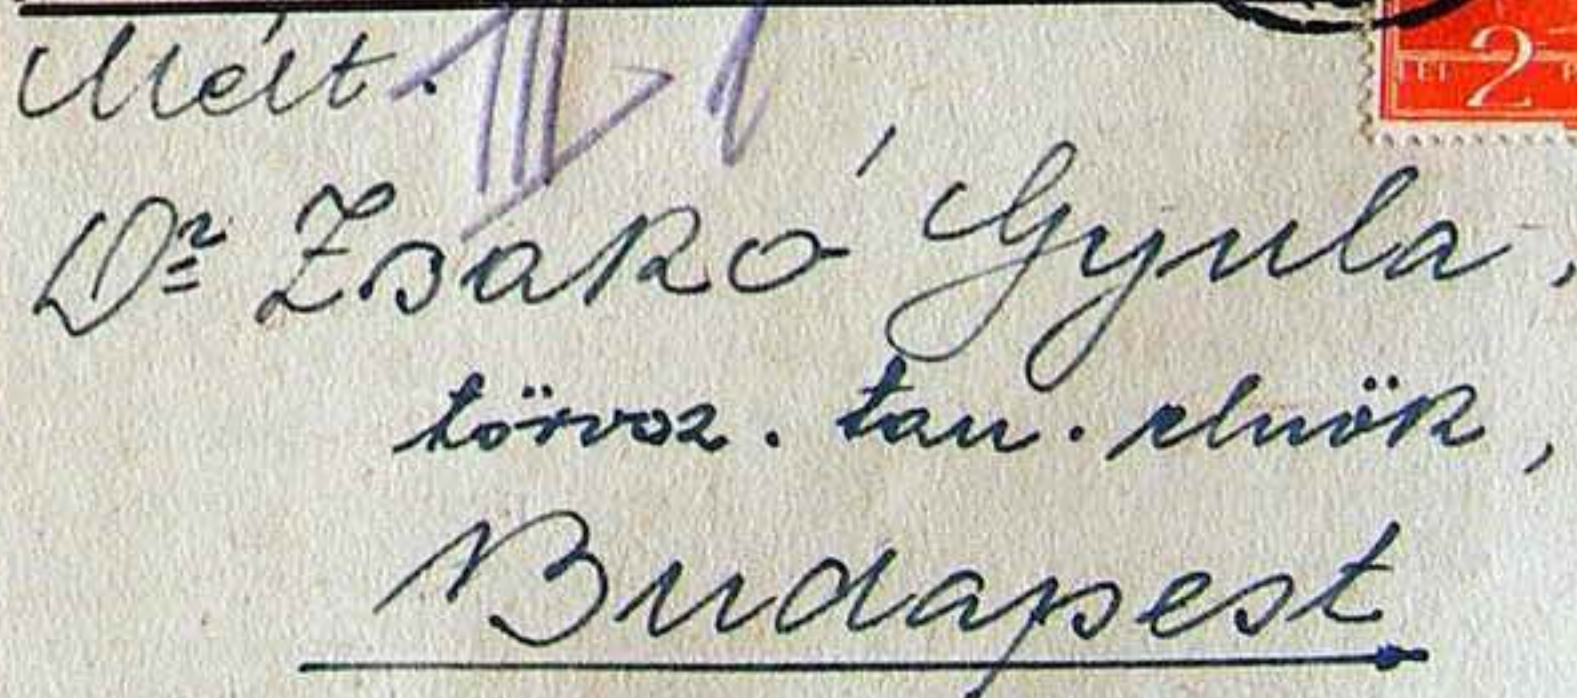 Mélt.
LEI 2
Dr Zsakó Gyula,
törvsz. tan. elnök,
Budapest